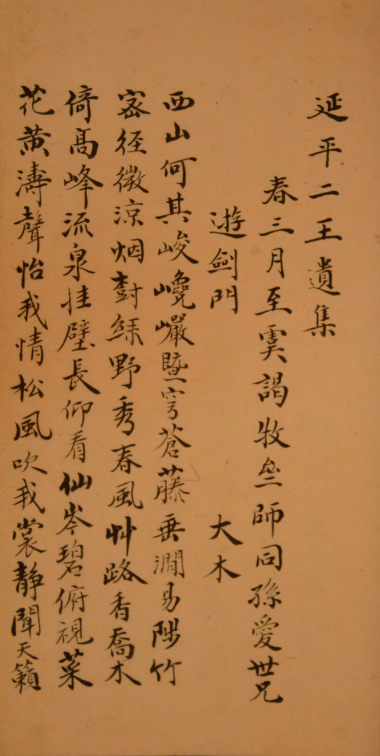 延平二王遺集
春三月至虞謁牧叄師同孫愛世兄
遊劍門 大木
西山何其峻巉巖暨穹蒼藤垂澗易陟竹
密徑微涼烟樹綠野秀春風艸路香喬木
倚高峰流泉挂壁長仰看仙岑碧俯視菜
花黃濤聲怡我情松風吹我裳靜聞天籟